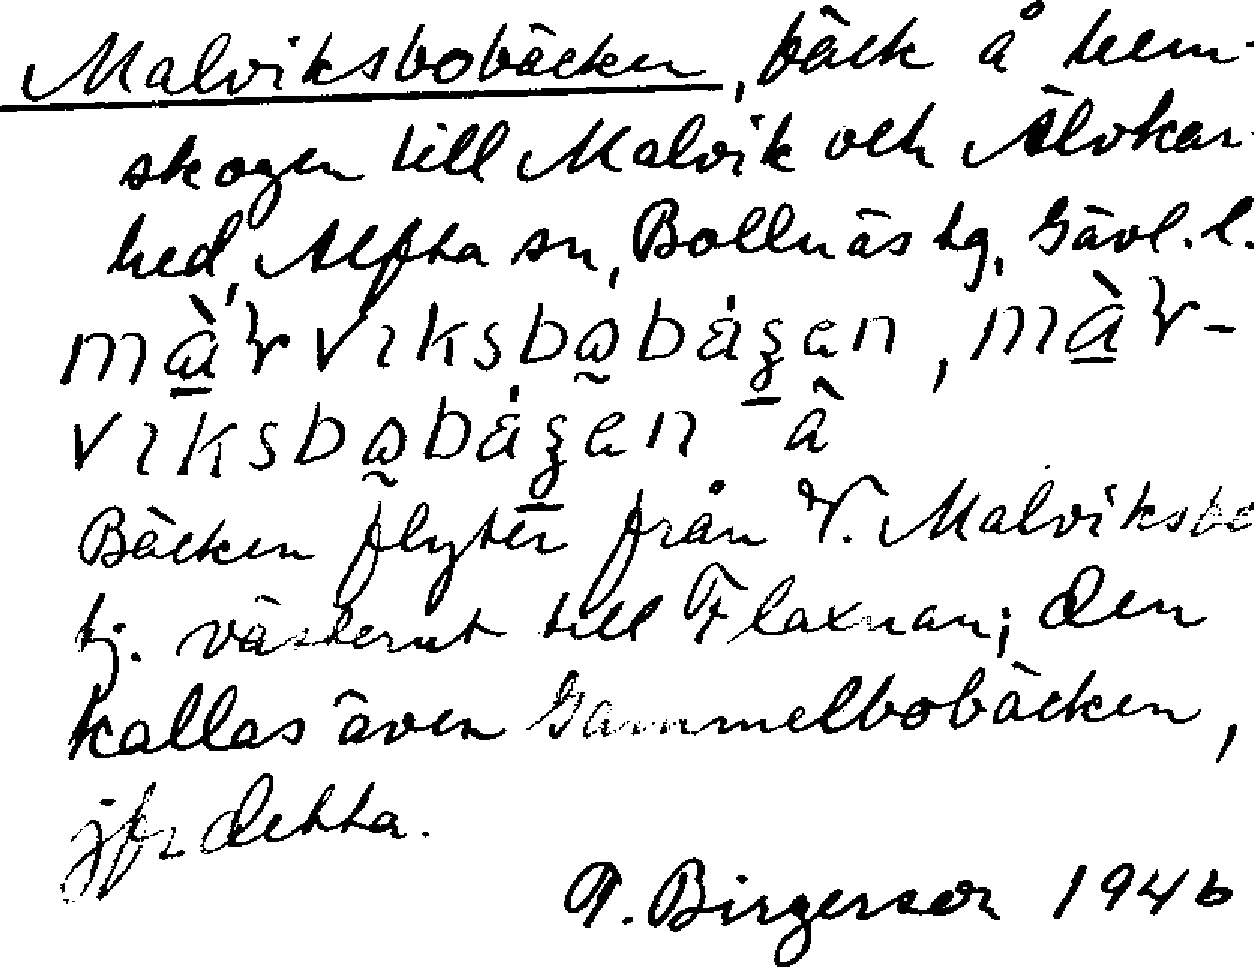 Malviksbobäcken, bäck å hem-
skogen till Malvik och Älvkar-
hed, Alfta sn, Bollnäs tg, Gävl. l.
Bäcken flyter från V. Malviksbo
tj. västerut till Flaxnan; den
kallas även Gammelbobäcken,
jfr detta.
T. Birgerson 1946